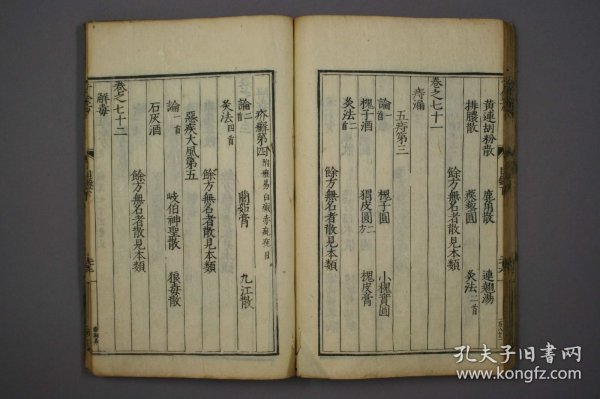 黃連胡粉散　鹿角散　連翹湯
排膿散　蒺藜圓　灸法二首
餘方無名者散見本類
卷之七十一
痔漏
五痔第三
論一首　槐子圓　小槐實圓
槐子酒　猬皮圓方二　槐皮膏
灸法二首
餘方無名者散見本類
疥癬第四
論二首　䕡茹膏　九江散
灸法四首
餘方無名者散見本類
惡疾大風第五
論一首　岐伯神聖散　狼毒散
石灰酒
餘方無名者散見本類
卷之七十二
解毒
孔夫子旧書网
www.kongfz.com